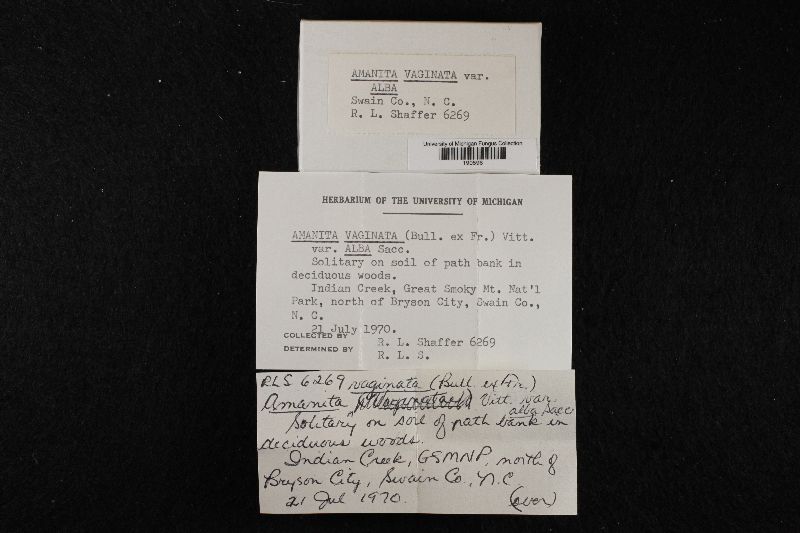 AMANITA VAGINATA var.
ALBA
Swain Co., N. C.
R. L. Shaffer 6269
University of Michigan Fungus Collection
190596
HERBARIUM OF THE UNIVERSITY OF MICHIGAN
AMANITA VAGINATA (Bull. ex Fr.) Vitt.
var. ALBA Sacc.
Solitary on soil of path bank in
deciduous woods.
Indian Creek, Great Smoky Mt. Nat'l
Park, north of Bryson City, Swain Co.,
N. C.
21 July 1970.
COLLECTED BY R. L. Shaffer 6269
DETERMINED BY R. L. S.
RLS 6269 vaginata (Bull. ex Fr.)
Amanita Vitt. var.
alba Sacc.
Solitary on soil of path bank in
deciduous woods.
Indian Creek, GSMNP, north of
Bryson City, Swain Co., N.C
21 Jul 1970. (over)